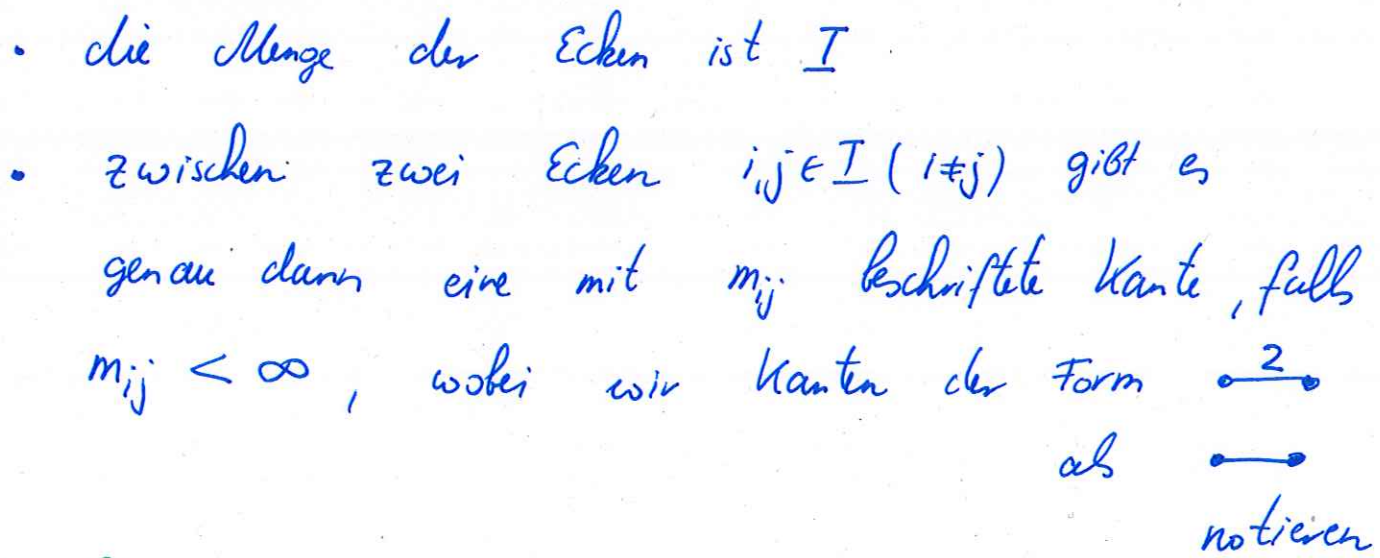 • die Menge der Ecken ist I
• zwischen zwei Ecken i,j ∈ I (i≠j) gibt es
genau dann eine mit m_ij beschriftete Kante, falls
m_ij < ∞, wobei wir Kanten der Form •—2—•
als •—•
notieren